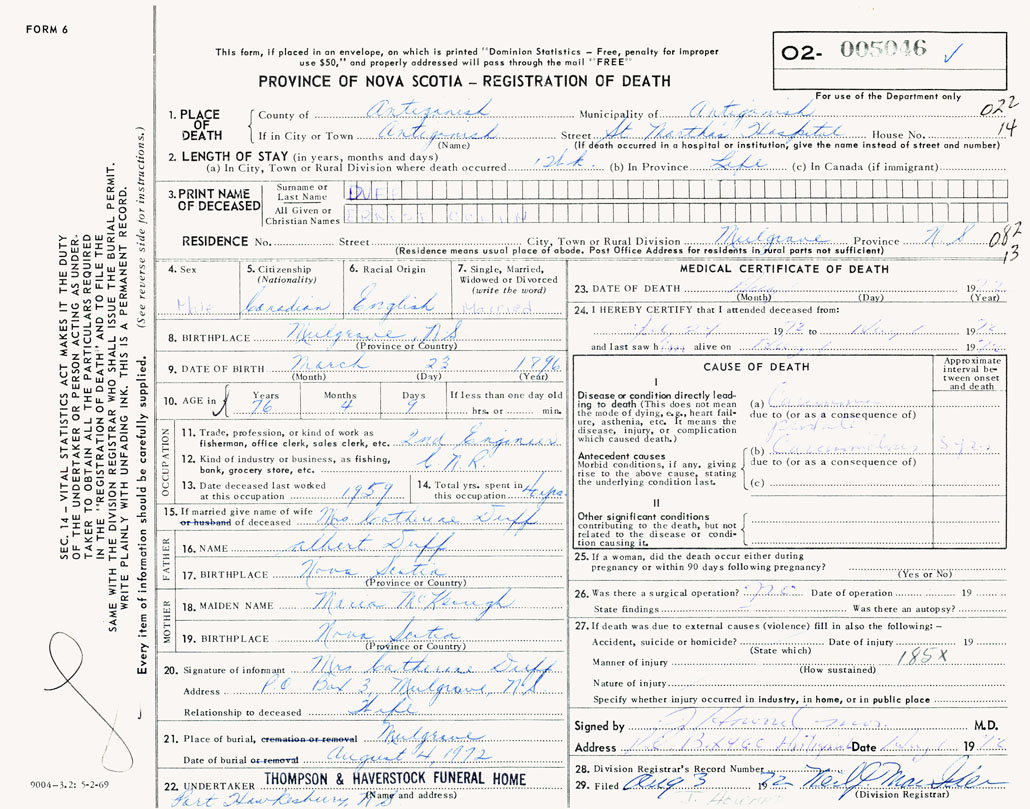 FORM 6
This form, if placed in an envelope, on which is printed "Dominion Statistics – Free, penalty for improper
use $50," and properly addressed will pass through the mail "FREE"
PROVINCE OF NOVA SCOTIA – REGISTRATION OF DEATH
O2- 005046
For use of the Department only
022
14
1. PLACE OF DEATH
County of Antigonish Municipality of Antigonish
If in City or Town Antigonish Street St Martha's Hospital House No.
(Name) (If death occurred in a hospital or institution, give the name instead of street and number)
2. LENGTH OF STAY (in years, months and days)
(a) In City, Town or Rural Division where death occurred 1 wk. (b) In Province Life (c) In Canada (if immigrant)
3. PRINT NAME OF DECEASED
Surname or Last Name DUFF
All Given or Christian Names ERNEST
RESIDENCE No. Street City, Town or Rural Division Mulgrave Province N S
082
13
(Residence means usual place of abode. Post Office Address for residents in rural parts not sufficient)
4. Sex Male
5. Citizenship (Nationality) Canadian
6. Racial Origin English
7. Single, Married, Widowed or Divorced (write the word) Married
8. BIRTHPLACE Mulgrave, N S
(Province or Country)
9. DATE OF BIRTH March 23 1896
(Month) (Day) (Year)
10. AGE in Years 76 Months 4 Days 9 If less than one day old
hrs. or min.
OCCUPATION
11. Trade, profession, or kind of work as
fisherman, office clerk, sales clerk, etc. 2nd Engineer
12. Kind of industry or business, as fishing,
bank, grocery store, etc. C.N.R.
13. Date deceased last worked
at this occupation 1959
14. Total yrs. spent in
this occupation yrs.
15. If married give name of wife
or husband of deceased Mrs Catherine Duff
FATHER
16. NAME Albert Duff
17. BIRTHPLACE Nova Scotia
(Province or Country)
MOTHER
18. MAIDEN NAME Maria McKeough
19. BIRTHPLACE Nova Scotia
(Province or Country)
20. Signature of informant Mrs Catherine Duff
Address P.O. Box 3, Mulgrave, N S
Relationship to deceased Wife
21. Place of burial, cremation or removal Mulgrave
Date of burial or removal August 4, 1972
22. UNDERTAKER THOMPSON & HAVERSTOCK FUNERAL HOME
(Name and address)
Port Hawkesbury, N S
MEDICAL CERTIFICATE OF DEATH
23. DATE OF DEATH 1972
(Month) (Day) (Year)
24. I HEREBY CERTIFY that I attended deceased from:
July 24 1972 to Aug 1 1972
and last saw him alive on Aug 1 1972
CAUSE OF DEATH
Approximate interval between onset and death
I
Disease or condition directly leading to death (This does not mean
the mode of dying, e.g., heart failure, asthenia, etc. It means the
disease, injury, or complication
which caused death.)
(a)
due to (or as a consequence of)
Antecedent causes
Morbid conditions, if any, giving
rise to the above cause, stating
the underlying condition last.
(b)
due to (or as a consequence of)
(c)
II
Other significant conditions
contributing to the death, but not
related to the disease or condition causing it.
25. If a woman, did the death occur either during
pregnancy or within 90 days following pregnancy?
(Yes or No)
26. Was there a surgical operation? Date of operation 19
State findings Was there an autopsy?
27. If death was due to external causes (violence) fill in also the following: –
Accident, suicide or homicide? Date of injury 19
(State which)
Manner of injury 185X
(How sustained)
Nature of injury
Specify whether injury occurred in industry, in home, or in public place
Signed by M.D.
Address Date Aug 1 1972
28. Division Registrar's Record Number
29. Filed Aug 3 1972
(Division Registrar)
SEC. 14 – VITAL STATISTICS ACT MAKES IT THE DUTY
OF THE UNDERTAKER OR PERSON ACTING AS UNDER-
TAKER TO OBTAIN ALL THE PARTICULARS REQUIRED
IN THE "REGISTRATION OF DEATH" AND TO FILE THE
SAME WITH THE DIVISION REGISTRAR WHO SHALL ISSUE THE BURIAL PERMIT.
WRITE PLAINLY WITH UNFADING INK. THIS IS A PERMANENT RECORD.
Every item of information should be carefully supplied. (See reverse side for instructions.)
9004-3.2: 5-2-69